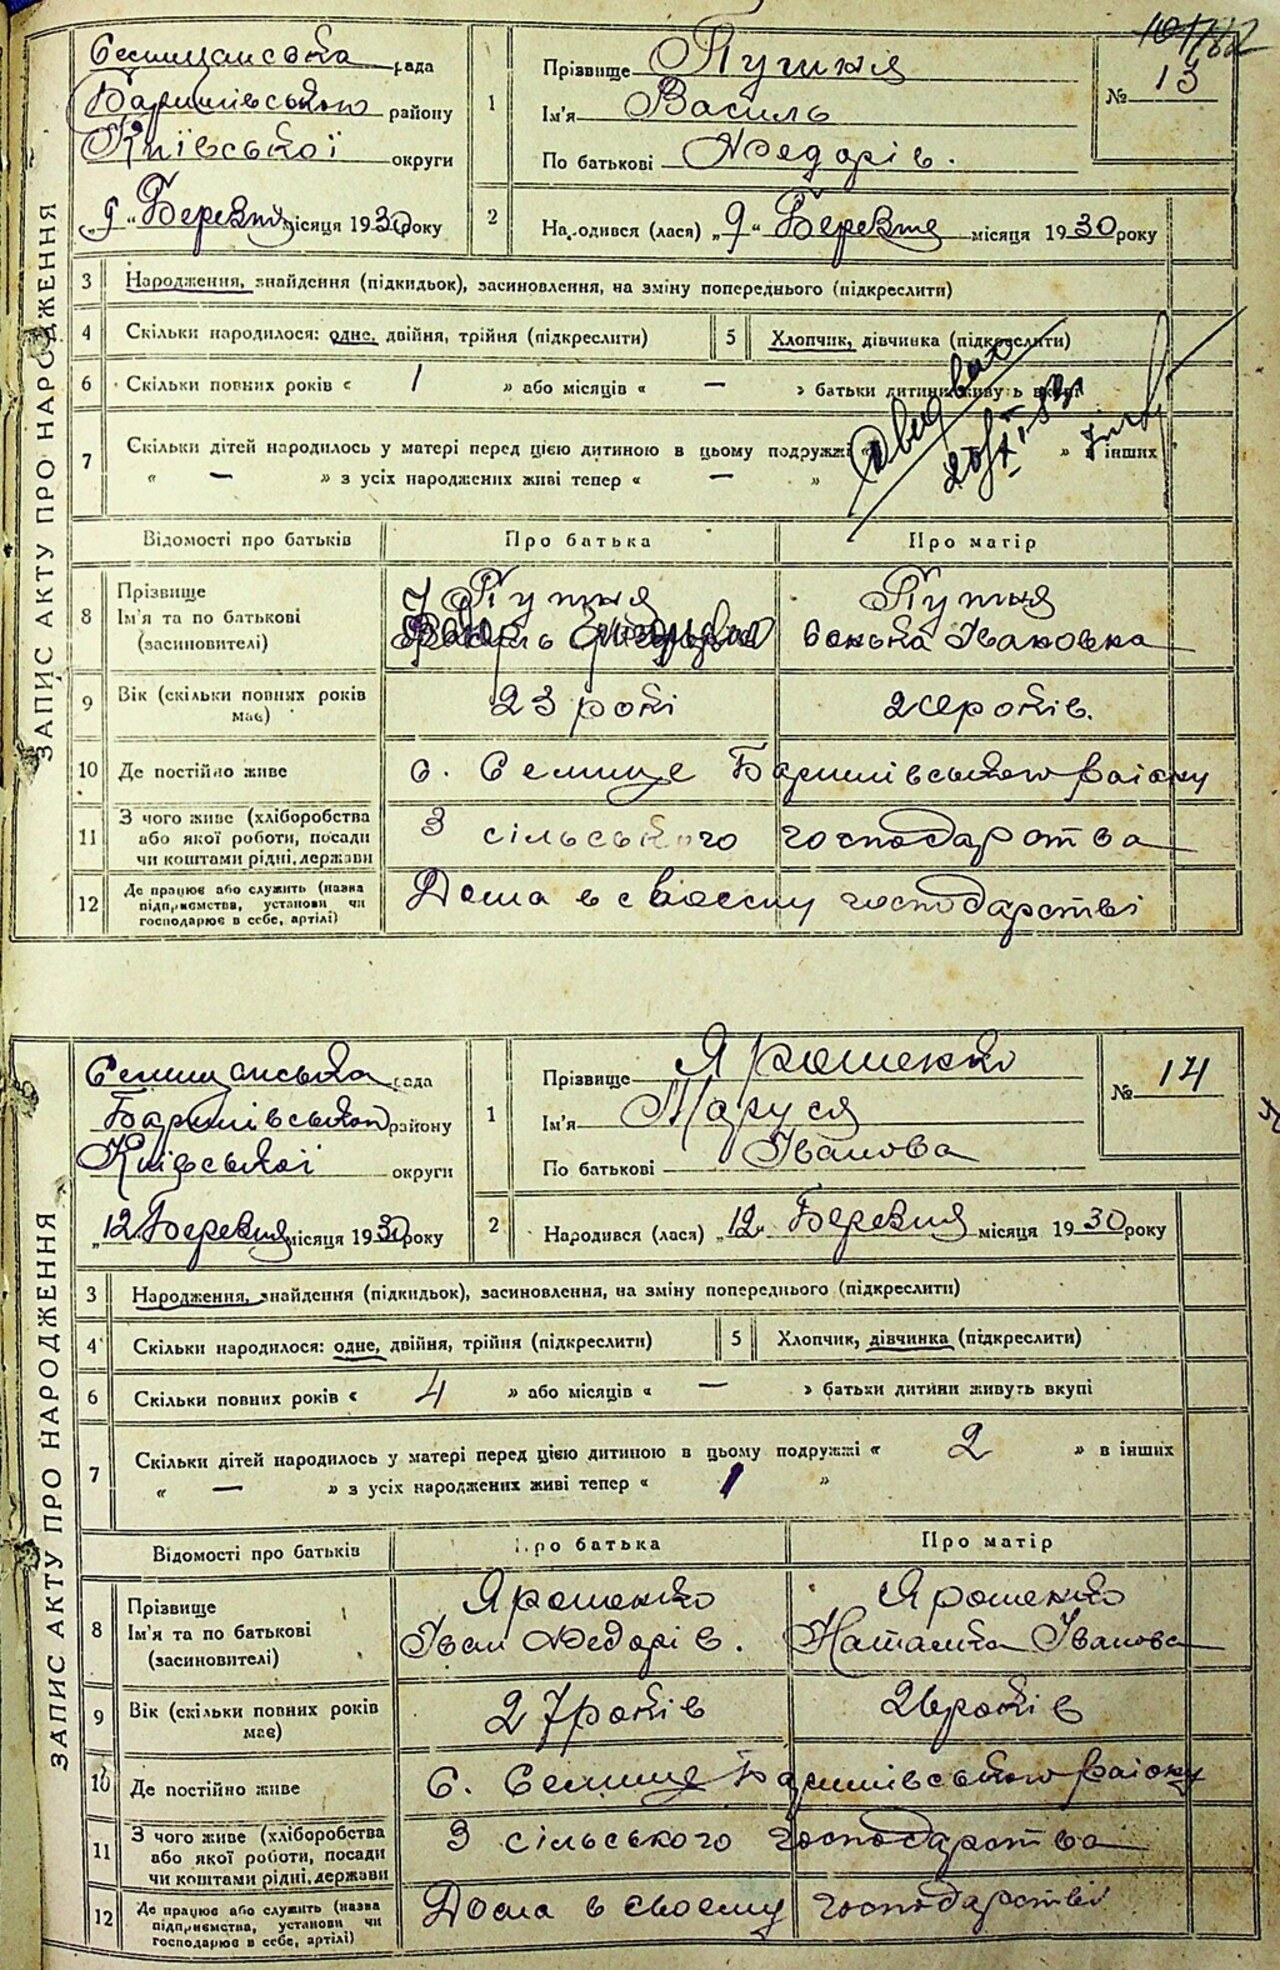 182
ЗАПИС АКТУ ПРО НАРОДЖЕННЯ
Селищанська рада
Баришівського району
Київської округи
„9“ Березня місяця 1930 року
1
Прізвище
Ім'я Василь
По батькові Федорів.
№ 13
2 Народився (лася) „9“ Березня місяця 1930 року
3 Народження, знайдення (підкидьок), засиновлення, на зміну попереднього (підкреслити)
4 Скільки народилося: одне, двійня, трійня (підкреслити)
5 Хлопчик, дівчинка (підкреслити)
6 Скільки повних років « 1 » або місяців « — » батьки дитини живуть вкупі
7 Скільки дітей народилось у матері перед цією дитиною в цьому подружжі « » в інших
« — » з усіх народжених живі тепер « — »
Відомості про батьків Про батька Про матір
8 Прізвище
Ім'я та по батькові
(засиновителі)
Івановна
9 Вік (скільки повних років
має)
23 рокі
років.
10 Де постійно живе с. Селище Баришівського району
11 З чого живе (хліборобства
або якої роботи, посади
чи коштами рідні, держави
З сільського господарства
12 Де працює або служить (назва
підприємства, установи чи
господарює в себе, артілі)
Дома в своєму господарстві
ЗАПИС АКТУ ПРО НАРОДЖЕННЯ
Селищанська рада
Баришівського району
Київської округи
„12“ Березня місяця 1930 року
1
Прізвище Ярошенко
Ім'я Маруся
По батькові Іванова
№ 14
2 Народився (лася) „12“ Березня місяця 1930 року
3 Народження, знайдення (підкидьок), засиновлення, на зміну попереднього (підкреслити)
4 Скільки народилося: одне, двійня, трійня (підкреслити)
5 Хлопчик, дівчинка (підкреслити)
6 Скільки повних років « 4 » або місяців « — » батьки дитини живуть вкупі
7 Скільки дітей народилось у матері перед цією дитиною в цьому подружжі « 2 » в інших
« — » з усіх народжених живі тепер « 1 »
Відомості про батьків Про батька Про матір
8 Прізвище
Ім'я та по батькові
(засиновителі)
Ярошенко
Іван Федорів.
Ярошенко
Наталка Іванова
9 Вік (скільки повних років
має)
27 років
26 років
10 Де постійно живе С. Селище Баришівського району
11 З чого живе (хліборобства
або якої роботи, посади
чи коштами рідні, держави
З сільського господарства
12 Де працює або служить (назва
підприємства, установи чи
господарює в себе, артілі)
Дома в своєму господарстві